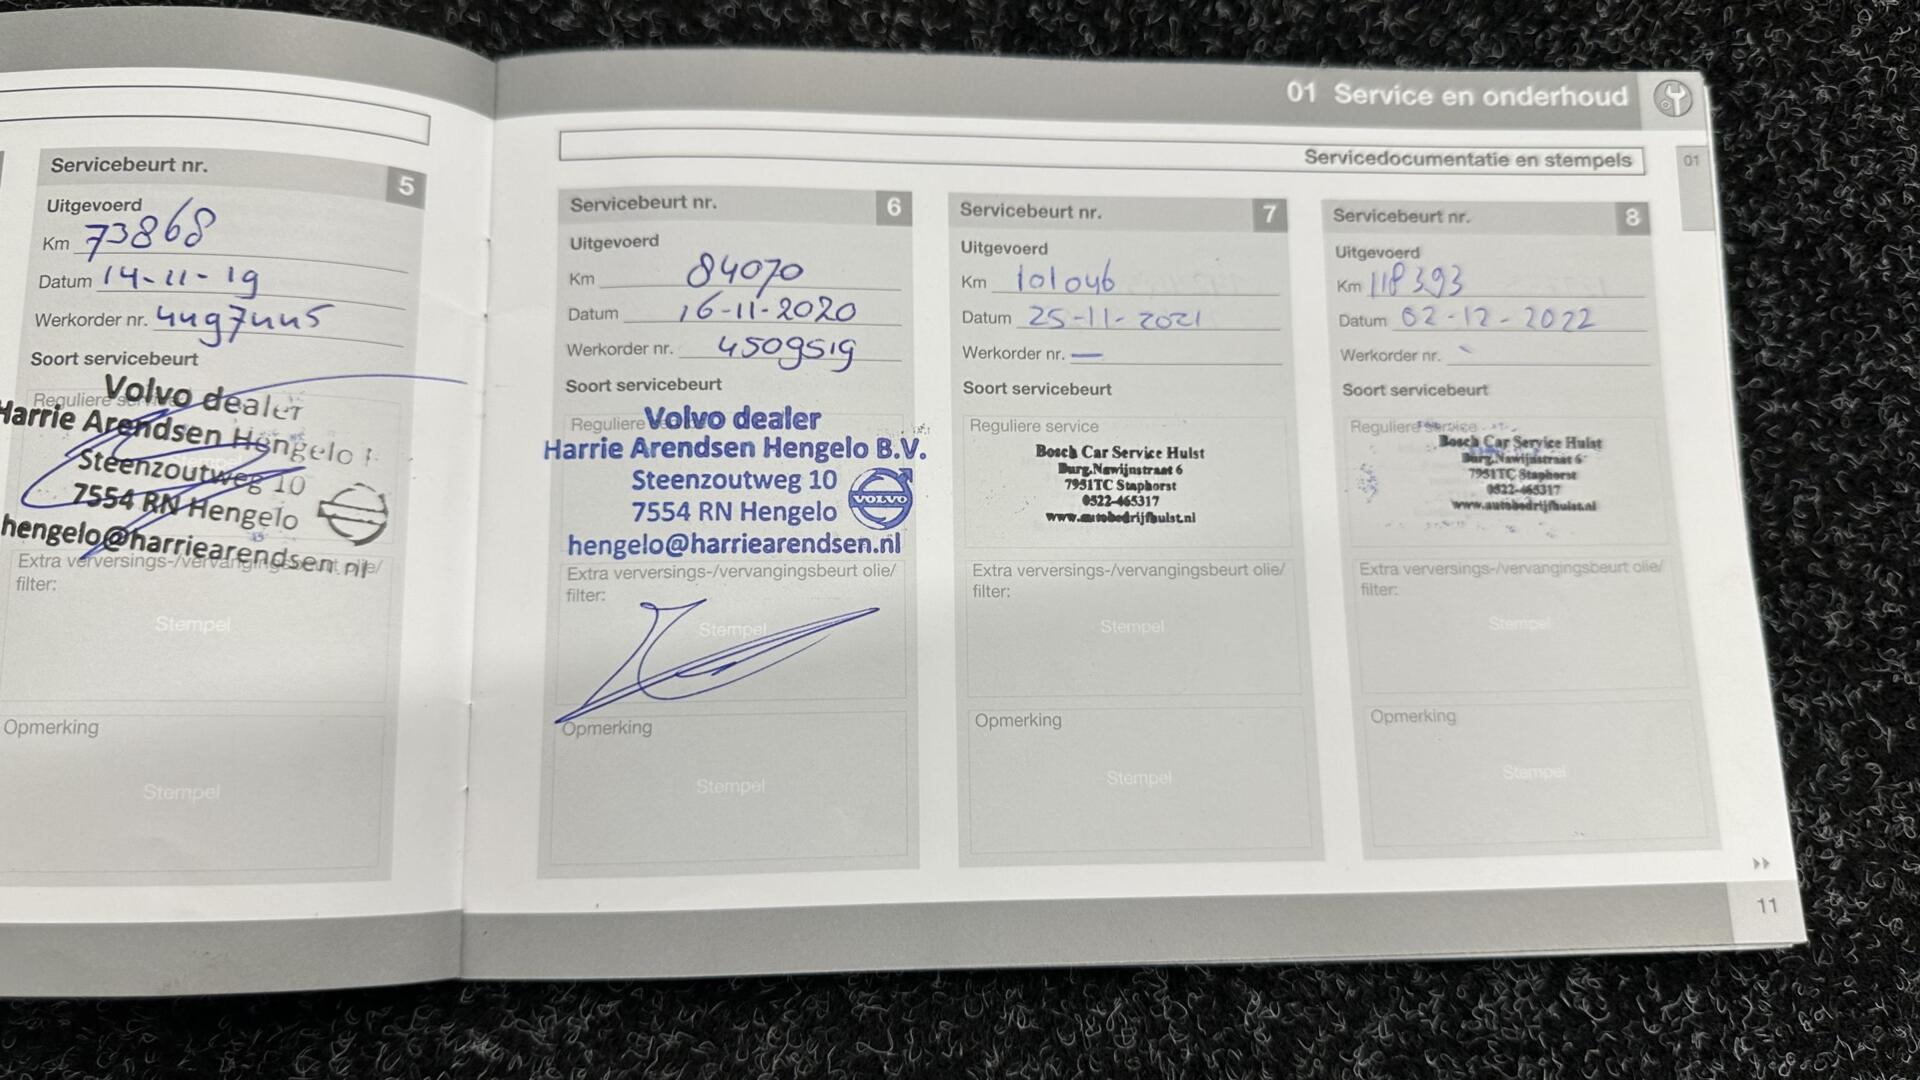 01 Service en onderhoud
Servicedocumentatie en stempels
01
Servicebeurt nr. 5
Uitgevoerd
Km 73868
Datum 14-11-19
Werkorder nr. 4497445
Soort servicebeurt
Reguliere
Volvo dealer
Harrie Arendsen Hengelo
Steenzoutweg 10
7554 RN Hengelo
hengelo@harriearendsen.nl
Extra verversings-/vervangingsbeurt olie/
filter:
Stempel
Opmerking
Stempel
Servicebeurt nr. 6
Uitgevoerd
Km 84070
Datum 16-11-2020
Werkorder nr. 4509519
Soort servicebeurt
Reguliere
Volvo dealer
Harrie Arendsen Hengelo B.V.
Steenzoutweg 10
7554 RN Hengelo
VOLVO
hengelo@harriearendsen.nl
Extra verversings-/vervangingsbeurt olie/
filter:
Stempel
Opmerking
Stempel
Servicebeurt nr. 7
Uitgevoerd
Km 101046
Datum 25-11-2021
Werkorder nr. —
Soort servicebeurt
Reguliere service
Bosch Car Service Hulst
Burg.Nawijnstraat 6
7951TC Staphorst
0522-465317
www.autobedrijfhulst.nl
Extra verversings-/vervangingsbeurt olie/
filter:
Stempel
Opmerking
Stempel
Servicebeurt nr. 8
Uitgevoerd
Km 118393
Datum 02-12-2022
Werkorder nr.
Soort servicebeurt
Reguliere service
Bosch Car Service Hulst
Burg.Nawijnstraat 6
7951TC Staphorst
0522-465317
www.autobedrijfhulst.nl
Extra verversings-/vervangingsbeurt olie/
filter:
Stempel
Opmerking
Stempel
11